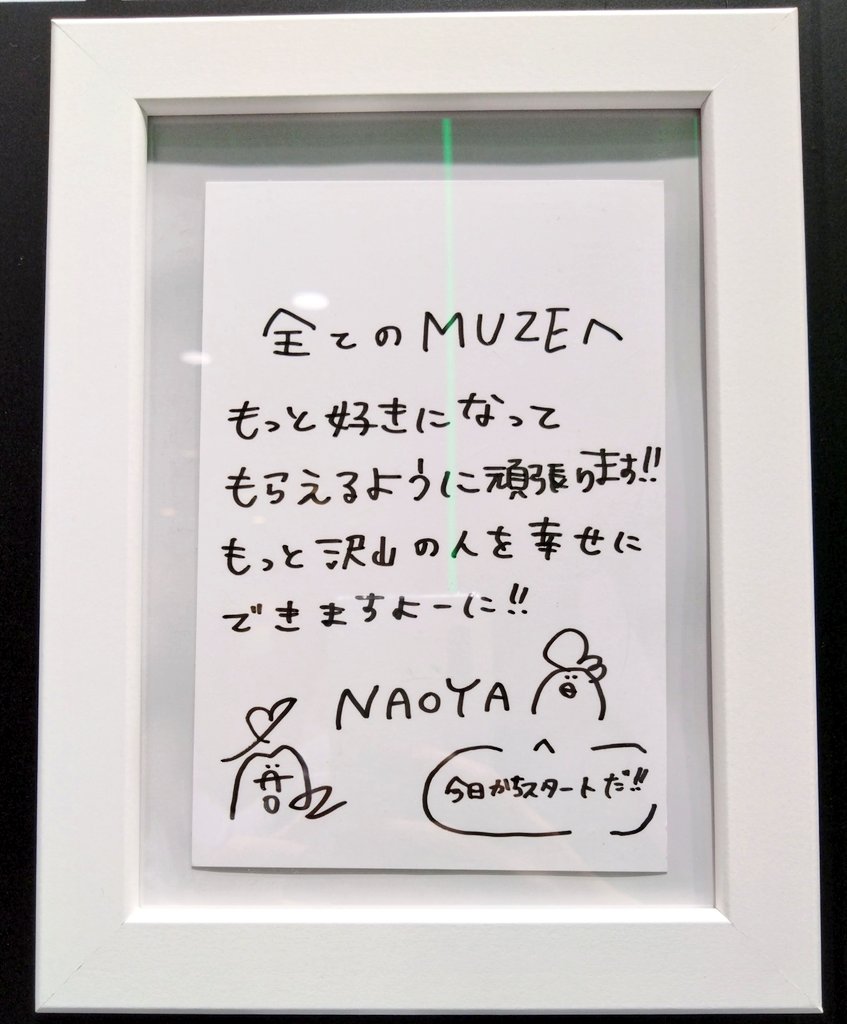 全てのMUZEへ
もっと好きになって
もらえるように頑張ります!!
もっと沢山の人を幸せに
できますよーに!!
NAOYA
今日からスタートだ!!